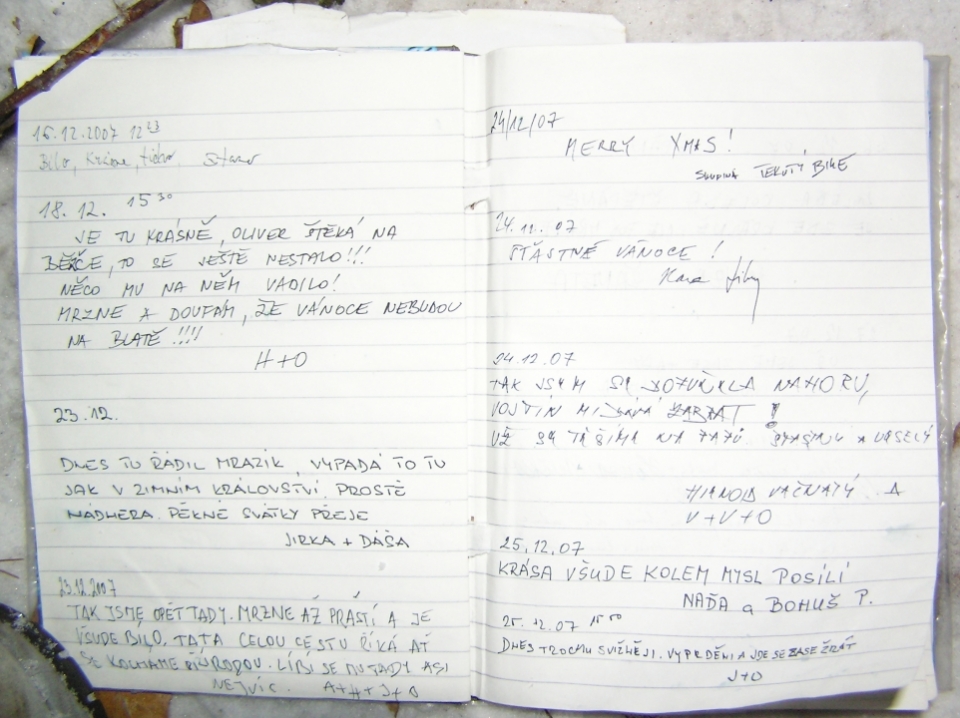 16.12.2007 12 23
Bílo, Krásně, ticho
18. 12. 15 30
JE TU KRÁSNĚ, OLIVER ŠTĚKÁ NA
BĚŽČE, TO SE JEŠTĚ NESTALO!!!
NĚCO MU NA NĚM VADILO!
MRZNE A DOUFÁM, ŽE VÁNOCE NEBUDOU
NA BLATĚ!!!!
H+O
23.12.
DNES TU ŘÁDIL MRAZÍK, VYPADÁ TO TU
JAK V ZIMNÍM KRÁLOVSTVÍ. PROSTĚ
NÁDHERA. PĚKNÉ SVÁTKY PŘEJE
JIRKA + DÁŠA
23.12.2007
TAK JSME OPĚT TADY. MRZNE AŽ PRAŠTÍ A JE
VŠUDE BÍLO. TAŤA CELOU CESTU ŘÍKÁ AŤ
SE KOCHÁME PŘÍRODOU. LÍBÍ SE MU TADY ASI
NEJVÍC. A+H+J+O
24/12/07
MERRY XMAS!
SKUPINA TEKUTÝ BIKE
24.12.07
ŠŤASTNÉ VÁNOCE!
24.12.07
TAK JSEM SE NAHORU,
VOJTÍN
UŽ SE TĚŠÍME NA A VESELÝ
V+V+O
25.12.07
KRÁSA VŠUDE KOLEM MYSL POSÍLÍ
NAĎA a BOHUŠ P.
25.12.07 15 50
DNES TROCHU SVIŽNĚJI. VYPRDĚNI A JDE SE ZASE ŽRÁT
J+O